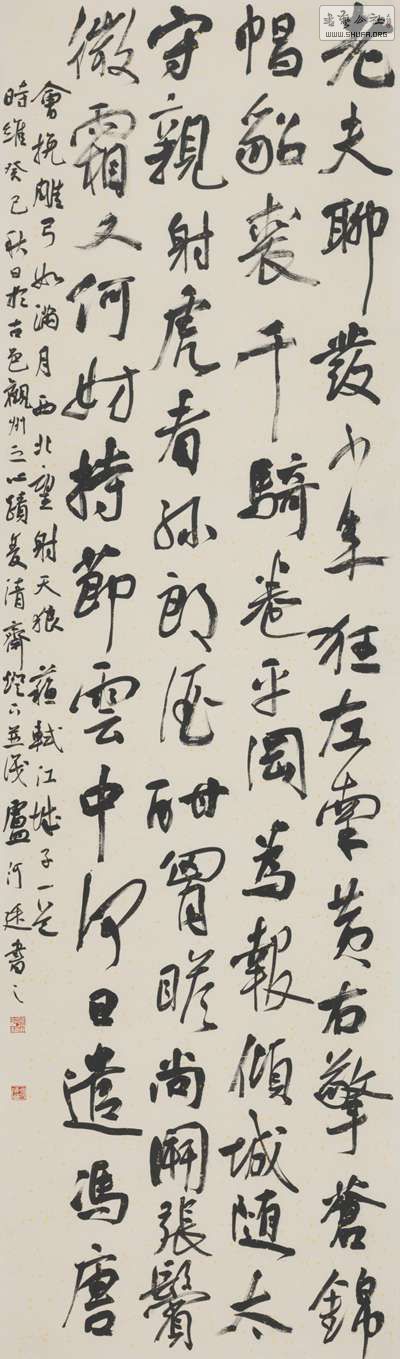 书法公社
WWW.SHUFA.ORG
老夫聊發少年狂左牽黃右擎蒼錦
帽貂裘千騎卷平岡為報傾城隨太
守親射虎看孫郎酒酣胷膽尚開張鬢
微霜又何妨持節雲中何日遣馮唐
會挽雕弓如滿月西北望射天狼 蘇軾江城子一首
時維癸巳秋日於古邑觀州之心蹟雙清齋燈下並識 盧河書之